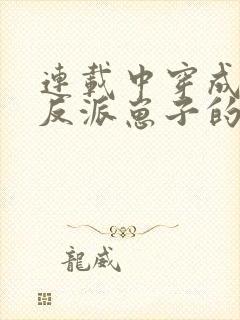 連載中穿成
反派崽子的
龍威